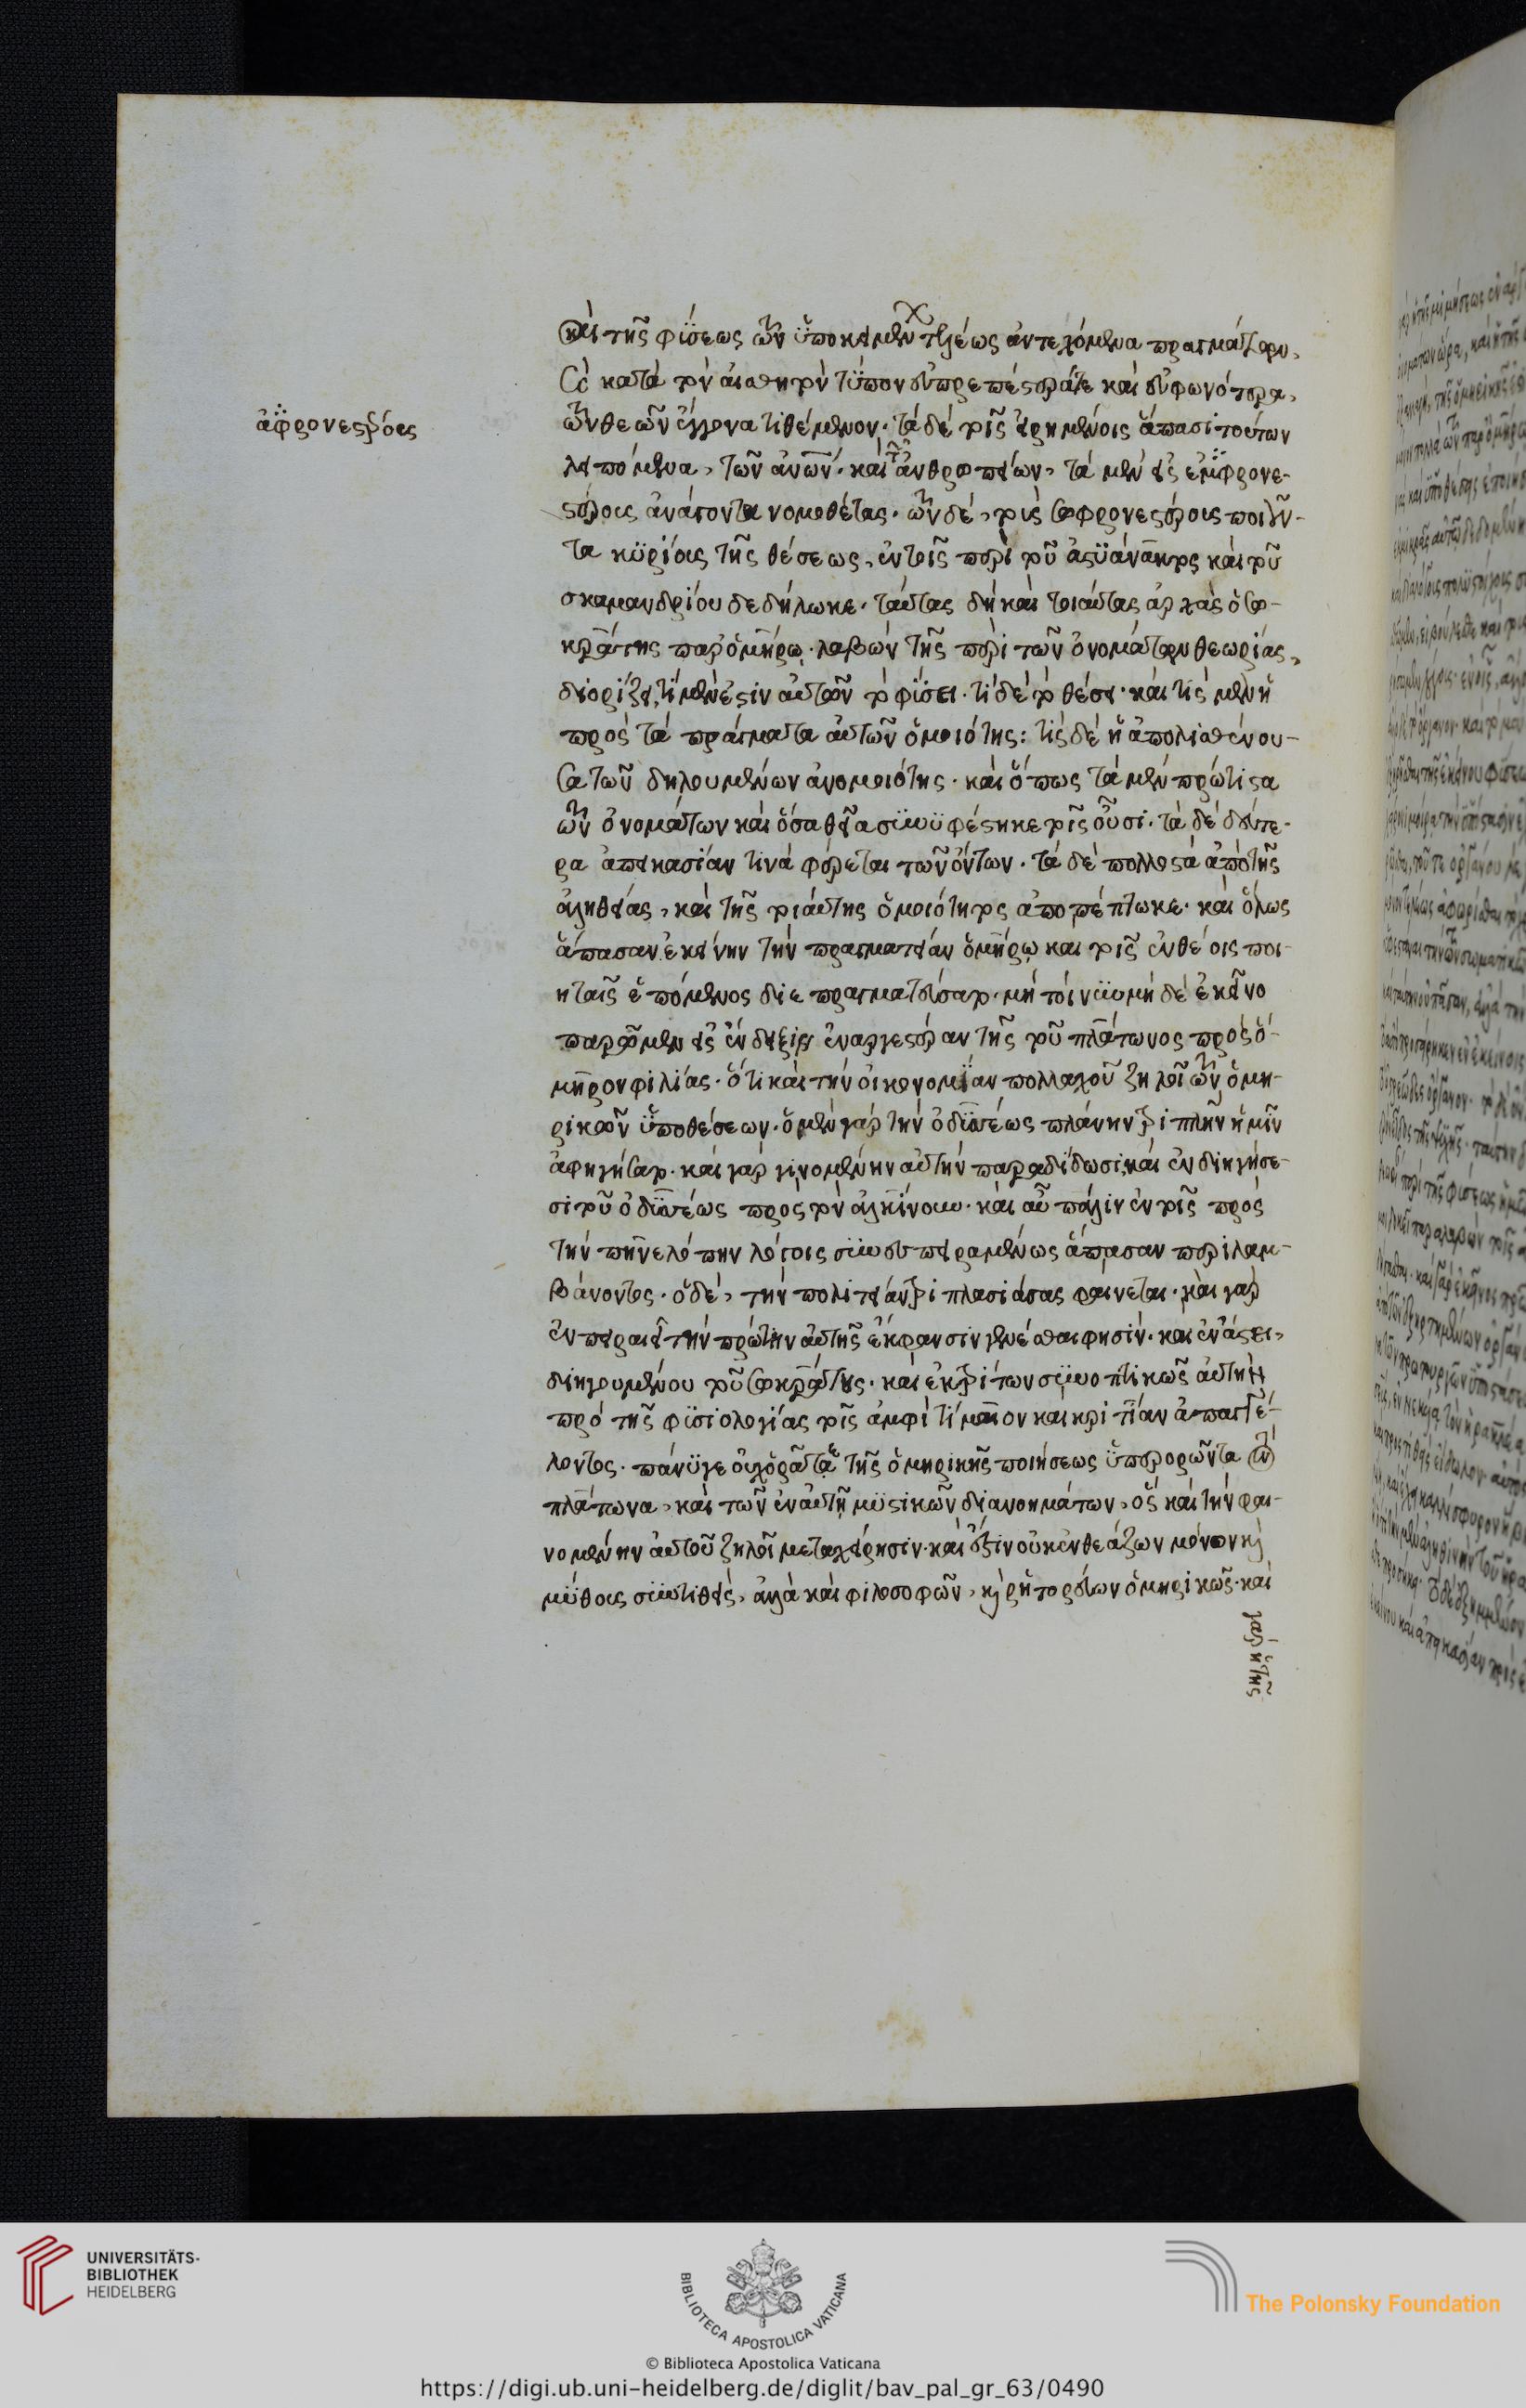 καὶ τῆς φύσεως τῶν ὑποκειμένων τελέως ἀντεχόμενα πραγμάτων,
καὶ κατὰ τὸν αἰσθητὸν τύπον εὐπρεπέστερά τε καὶ εὐφωνότερα,
τῶν θεῶν ἔγγονα τιθέμενον. τὰ δὲ τοῖς εἰρημένοις ἅπασι τούτων
ἀφρονεστέρους
λειπόμενα, τῶν ἀνων. καὶ ἀνθρωπείων, τὰ μὲν εἰς ἐμφρονε-
στέρους ἀνάγοντα νομοθέτας. τῶν δὲ, τοὺς σωφρονεστέρους ποιοῦν-
τα κυρίους τῆς θέσεως, ἐν τοῖς περὶ τοῦ ἀστυάνακτος καὶ τοῦ
σκαμανδρίου δεδήλωκε. ταύτας δὴ καὶ τοιαύτας ἀρχὰς ὁ σω-
κράτης παρ' ὁμήρῳ λαβὼν τῆς περὶ τῶν ὀνομάτων θεωρίας,
διορίζει, τί μέν ἐστιν αὐτῶν τὸ φύσει. τί δὲ τὸ θέσει. καὶ τίς μὲν ἡ
πρὸς τὰ πράγματα αὐτῶν ὁμοιότης: τίς δὲ ἡ ἀπολισθένου-
σα τῶν δηλουμένων ἀνομοιότης. καὶ ὅπως τὰ μὲν πρώτιστα
τῶν ὀνομάτων καὶ ὅσα θεῖα συνυφέστηκε τοῖς οὖσι. τὰ δὲ δεύτε-
ρα ἀπεικασίαν τινὰ φέρεται τῶν ὄντων. τὰ δὲ πολλοστὰ ἀπὸ τῆς
ἀληθείας, καὶ τῆς τοιαύτης ὁμοιότητος ἀποπέπτωκε. καὶ ὅλως
ἅπασαν ἐκείνην τὴν πραγματείαν ὁμήρῳ καὶ τοῖς ἐνθέοις ποι-
ηταῖς ἑπόμενος διεπραγματεύσατο. μὴ τοίνυν μηδὲ ἐκεῖνο
παρῶμεν εἰς ἔνδειξιν ἐναργεστέραν τῆς τοῦ πλάτωνος πρὸς ὅ-
μηρον φιλίας. ὅτι καὶ τὴν οἰκονομίαν πολλαχοῦ ζηλοῖ τῶν ὁμη-
ρικῶν ὑποθέσεων. ὁ μὲν γὰρ τὴν ὀδυσσέως πλάνην τριπλῆν ἡμῖν
ἀφηγήσατο. καὶ γὰρ γινομένην αὐτὴν παραδίδωσι, καὶ ἐν διηγήσε-
σι τοῦ ὀδυσσέως πρὸς τὸν ἀλκίνουν. καὶ αὖ πάλιν ἐν τοῖς πρὸς
τὴν πηνελόπην λόγοις συνεσπειραμένως ἅπασαν περιλαμ-
βάνοντος. ὁ δὲ, τὴν πολιτείαν τριπλασιάσας φαίνεται. καὶ γὰρ
ἐν πειραιεῖ τὴν πρώτην αὐτῆς ἔκφανσιν γενέσθαι φησίν. καὶ ἐν ἄστει,
διηγουμένου τοῦ σωκράτους. καὶ ἐκ τρίτων συνοπτικῶς αὐτὴν
πρὸ τῆς φυσιολογίας τοῖς ἀμφὶ τίμαιον καὶ κριτίαν ἀπαγγέλ-
λοντος. πάνυ γε ὀλιγο τῆς ὁμηρικῆς ποιήσεως ὑπερορῶντα τὸν
πλάτωνα, καὶ τῶν ἐν αὐτῇ μυστικῶν διανοημάτων, ὃς καὶ τὴν φαι-
νομένην αὐτοῦ ζηλοῖ μεταχείρησιν. καὶ ἔστιν οὐκ ἐνθεάζων μόνον κὶ
μύθους συντιθεὶς, ἀλλὰ καὶ φιλοσοφῶν, κὶ ῥητορεύων ὁμηρικῶς. καὶ
γὰρ ἡ τῆς
UNIVERSITÄTS-
BIBLIOTHEK
HEIDELBERG
BIBLIOTECA APOSTOLICA VATICANA
The Polonsky Foundation
© Biblioteca Apostolica Vaticana
https://digi.ub.uni-heidelberg.de/diglit/bav_pal_gr_63/0490